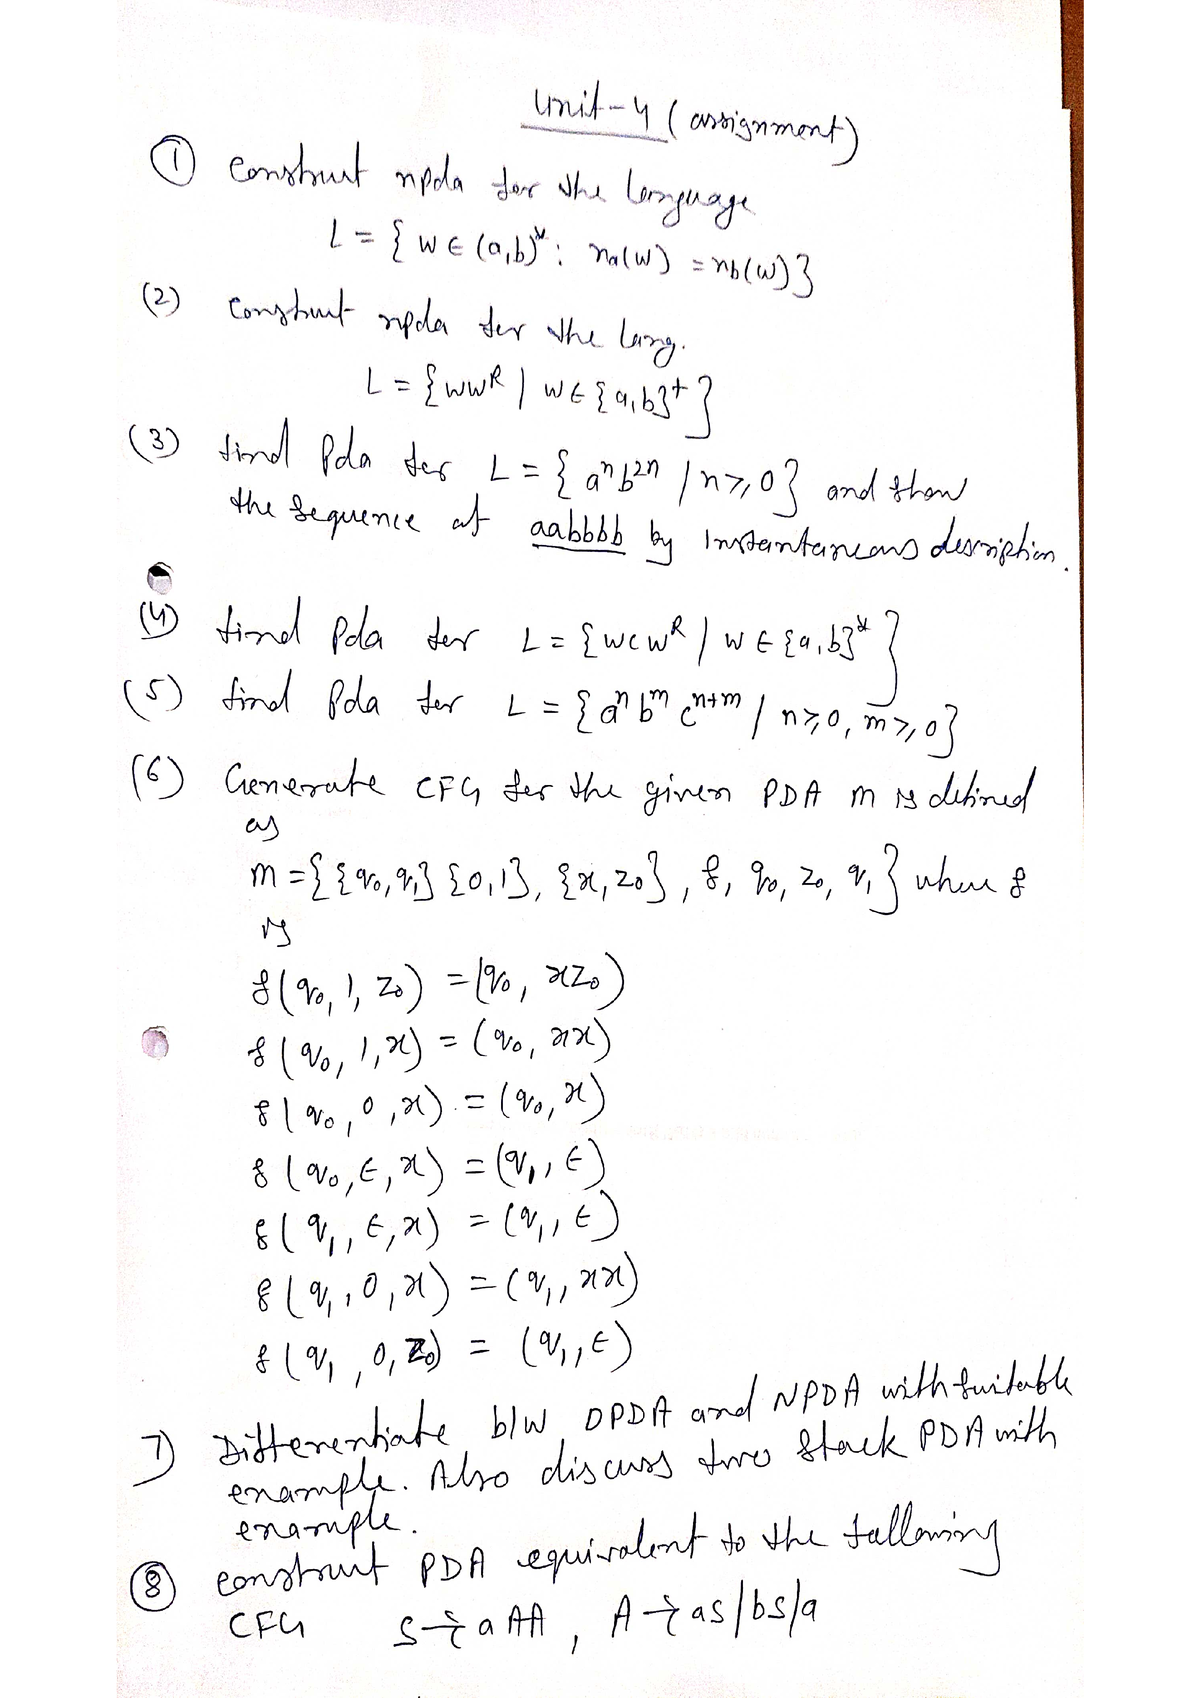 Unit-4 (assignment)
① Construct npda for the language
L = { w ∈ (a,b)* : na(w) = nb(w) }
(2) Construct npda for the lang.
L = { wwᴿ | w ∈ {a,b}⁺ }
(3) find Pda for L = { aⁿb²ⁿ / n ≥ 0 } and show
the sequence at aabbbb by Instantaneous description.
(4) find Pda for L = { wcwᴿ / w ∈ {a,b}* }
(5) find Pda for L = { aⁿ bᵐ cⁿ⁺ᵐ / n ≥ 0, m ≥ 0 }
(6) Generate CFG for the given PDA m is defined
as
m = { {q₀, q₁} {0,1}, {x, z₀}, δ, q₀, z₀, q₁ } where δ
is
δ(q₀, 1, z₀) = (q₀, xz₀)
δ(q₀, 1, x) = (q₀, xx)
δ(q₀, 0, x) = (q₀, x)
δ(q₀, ε, x) = (q₁, ε)
δ(q₁, ε, x) = (q₁, ε)
δ(q₁, 0, x) = (q₁, xx)
δ(q₁, 0, z₀) = (q₁, ε)
7) Differentiate b/w DPDA and NPDA with suitable
example. Also discuss two stack PDA with
example.
⑧ construct PDA equivalent to the following
CFG S → aAA, A → aS/bS/a